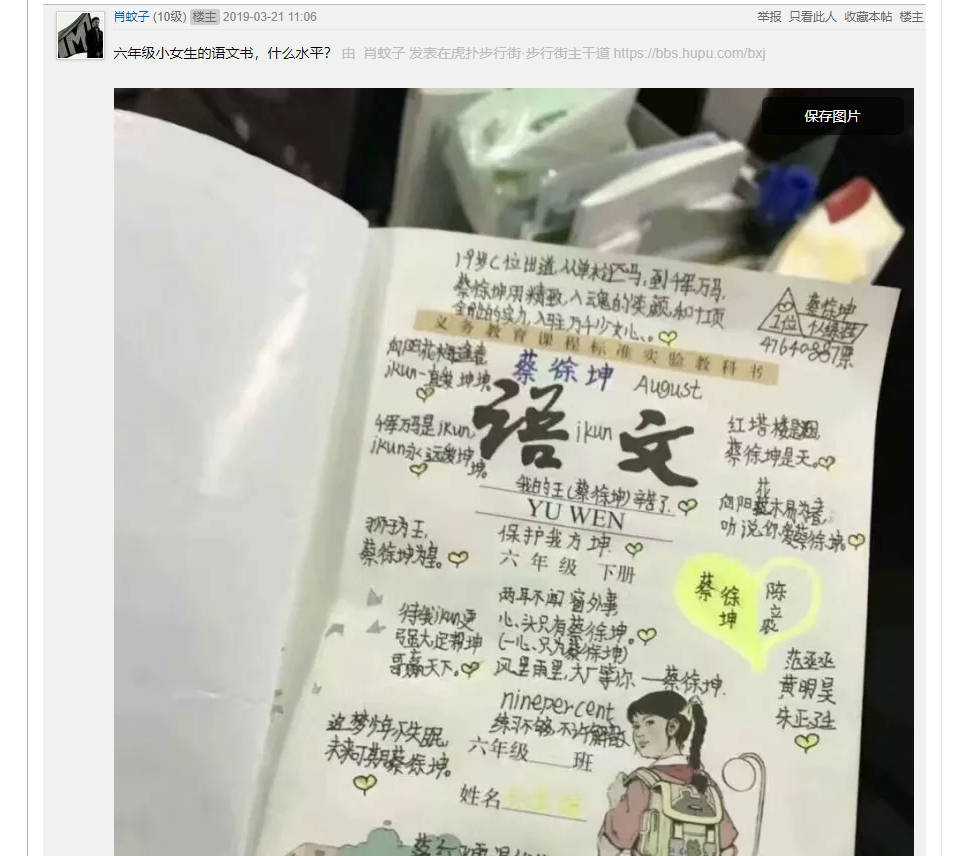 肖蚊子 (10级) 楼主 2019-03-21 11:06
举报 只看此人 收藏本帖 楼主
六年级小女生的语文书，什么水平？ 由 肖蚊子 发表在虎扑步行街·步行街主干道 https://bbs.hupu.com/bxj
保存图片
19岁C位出道,从单枪匹马,到千军万马,
蔡徐坤用精致,入魂的
全能的实力,入驻万千少女心、。
蔡徐坤
1位
47640887票
义务教育课程标准实验教科书
向阳花木
ikun一直爱坤坤。
蔡徐坤 August
千军万马是ikun,
ikun永远爱坤坤。
语文
ikun
红塔
蔡徐坤是天。
我的王(蔡徐坤)辛苦了.
YU WEN
向阳花木易为春,
听说你爱蔡徐坤。
保护我方坤.
为王,
蔡徐坤为皇。
六年级 下册
蔡徐坤
陈立农
两耳不闻窗外事
心、头只有蔡徐坤。
(一心、只为蔡徐坤)
风里雨里,大厂等你.—蔡徐坤.
待我ikun更
强大,定帮坤
哥赢天下。
范丞丞
黄明昊
朱正廷
ninepercent
练习不够,不许解散
追梦少年不失眠,
未来可期蔡徐坤。
六年级 班
姓名